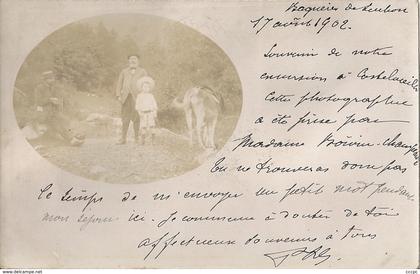 Bagnères de Luchon
17 août 1902.
Souvenir de notre
excursion à Castelvieilh
Cette photographie
a été prise par
Madame Boivin-Champeaux
Tu ne trouveras donc pas
le temps de m'envoyer un petit mot pendant
mon séjour ici. Je commence à douter de toi
affectueux souvenirs à tous